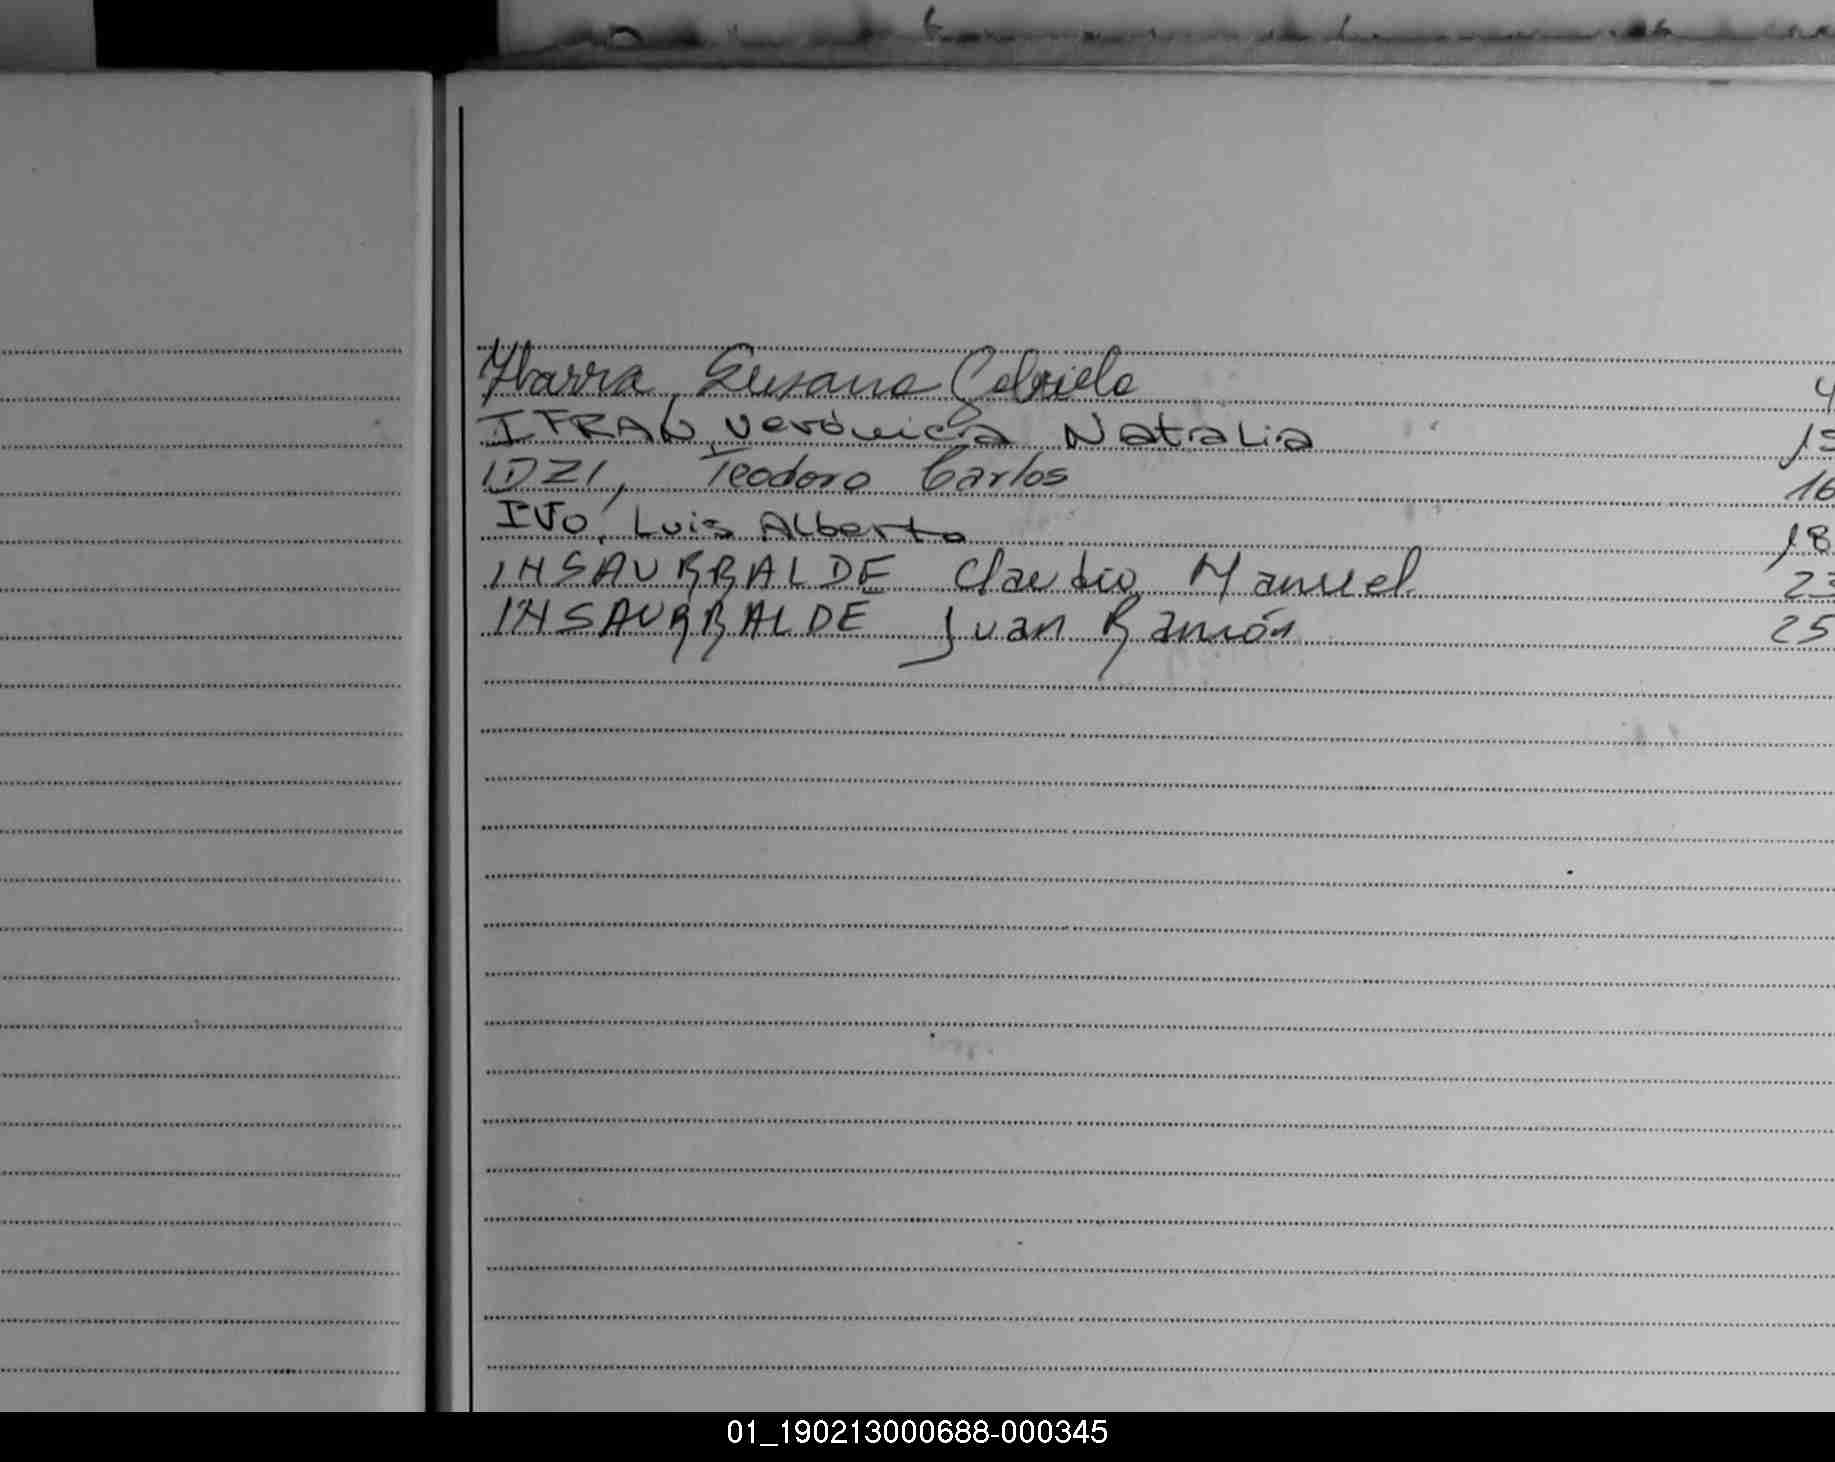 Ybarra, Susana Gabriela 4
IFRAN, Verónica Natalia 15
IDZI, Teodoro Carlos 16
IVO, Luis Alberto 18
INSAURRALDE Claudio Manuel 23
INSAURRALDE Juan Ramón 25
01_190213000688-000345